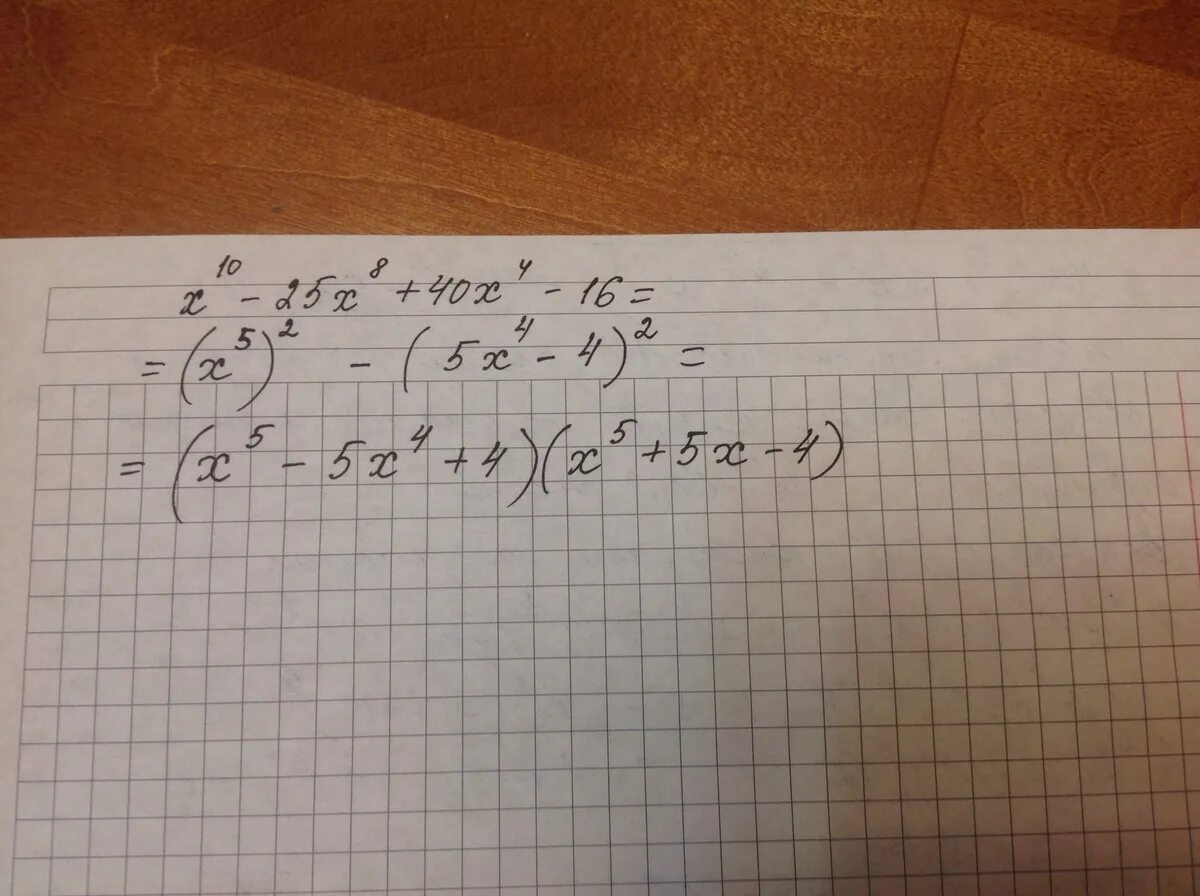 x¹⁰ - 25x⁸ + 40x⁴ - 16 =
= (x⁵)² - (5x⁴ - 4)² =
= (x⁵ - 5x⁴ + 4)(x⁵ + 5x - 4)